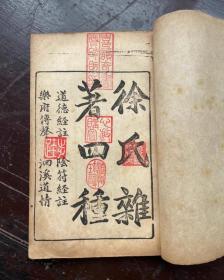 徐氏雜
著四種
道德經註 陰符經註
樂府傳聲 洄溪道情